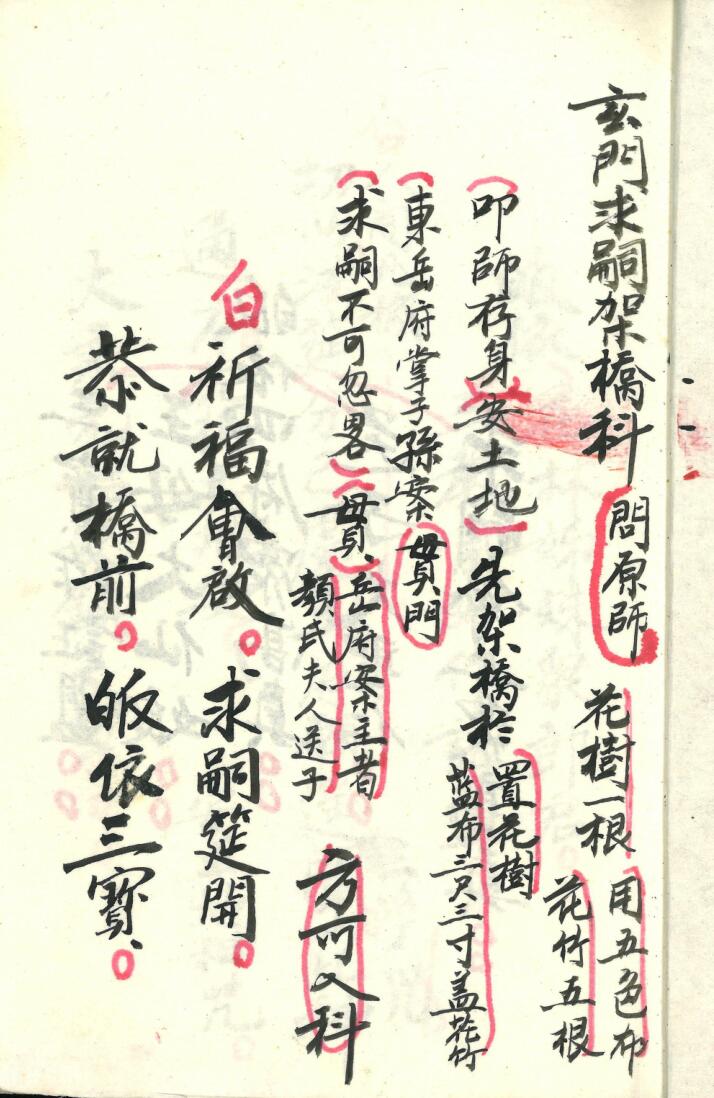 玄門求嗣架橋科 問原師 花樹一根 用五色布
花竹五根
叩師存身安土地 先架橋於 置花樹
藍布三尺三寸盖花竹
東岳府掌子孫案 門
求嗣不可忽畧 岳府案主者
顏氏夫人送子 方可入科
白 祈福會啟。求嗣筵開。
恭就橋前。皈依三寶、